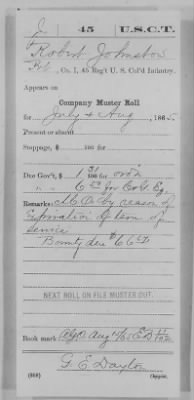 J 45 U.S.C.T.
Robert Johnston
Pvt, Co. I, 45 Reg't U. S. Col'd Infantry.
Appears on
Company Muster Roll
for July & Aug, 1865.
Present or absent
Stoppage, $ 100 for
Due Gov't, $ 1 31/100 for ord's
" " 6 for C. & G. Eq.
Remarks: M.O. by reason of
Expiration of term of
service
Bounty due $66
NEXT ROLL ON FILE MUSTER OUT.
Book mark:
G. E. Dayton
(358) Copyist.